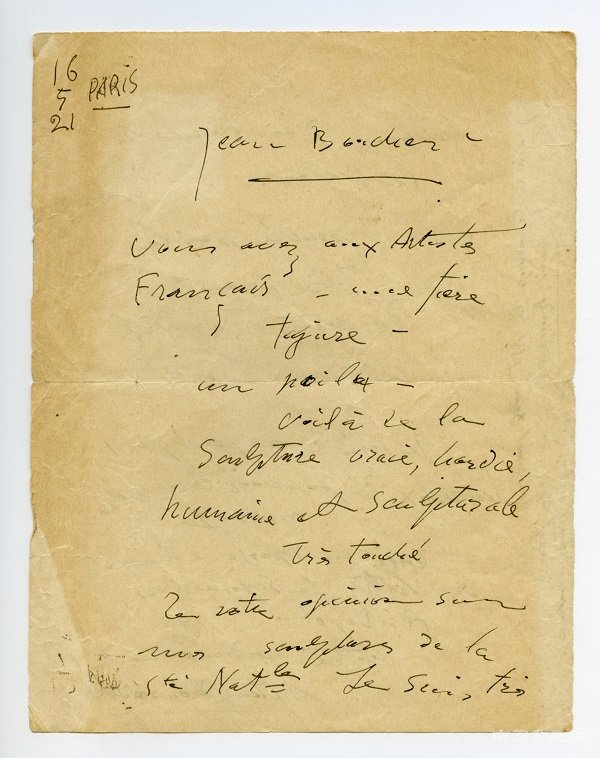 16
5
21
PARIS
Jean Boucher -
Vous avez aux Artistes
Français - une fière
figure -
un poilu -
voilà de la
sculpture vraie, hardie,
humaine et sculpturale
très touché
de votre opinion sur
mes sculptures de la
Sté Natle Je suis très